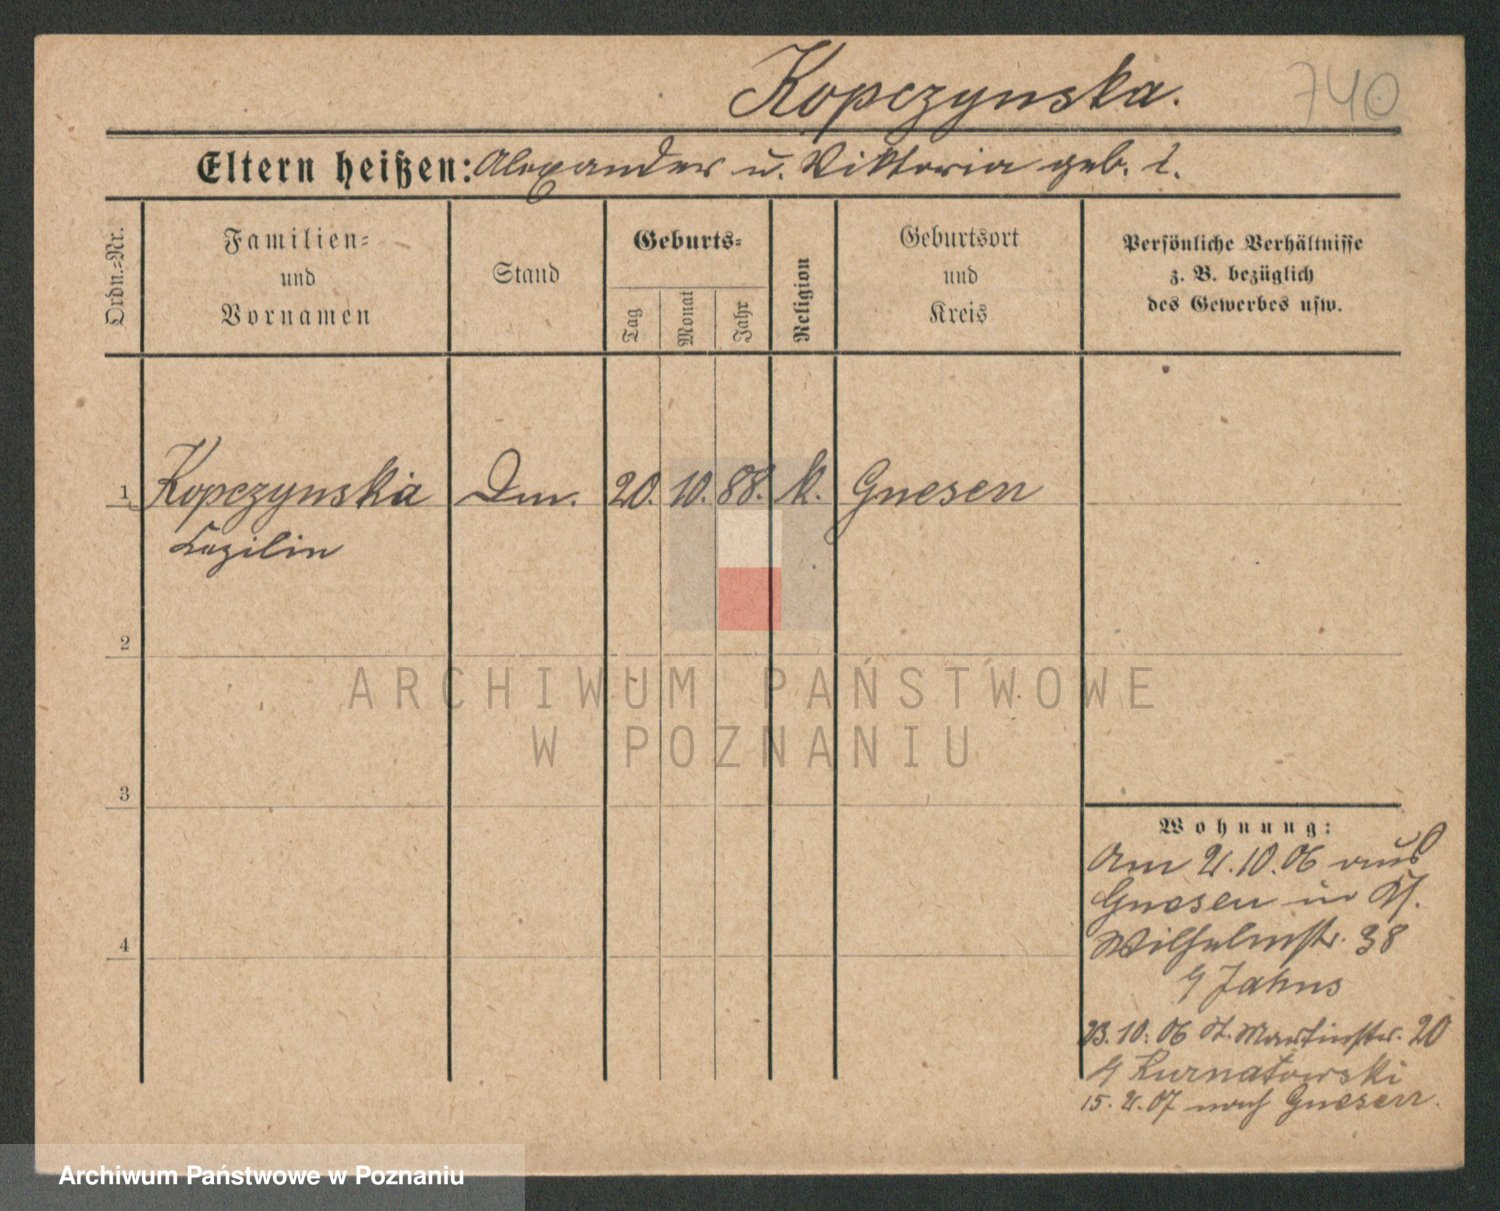 Kopczynska.
740
Eltern heißen: Alexander u. Viktoria geb. ?.
Ordn.=Nr.
Familien=
und
Vornamen
Stand
Geburts=
Tag
Monat
Jahr
Religion
Geburtsort
und
Kreis
Persönliche Verhältnisse
z. B. bezüglich
des Gewerbes usw.
1 Kopczynska Dm. 20. 10. 88. k. Gnesen
Cezilin
2
3
4
Wohnung:
Am 21.10.06 aus
Gnesen in
Wilhelmstr. 38
Jahns
23.10.06 St. Martinstr. 20
Kurnatowski
15. 2. 07 nach Gnesen.
ARCHIWUM PAŃSTWOWE
W POZNANIU
Archiwum Państwowe w Poznaniu